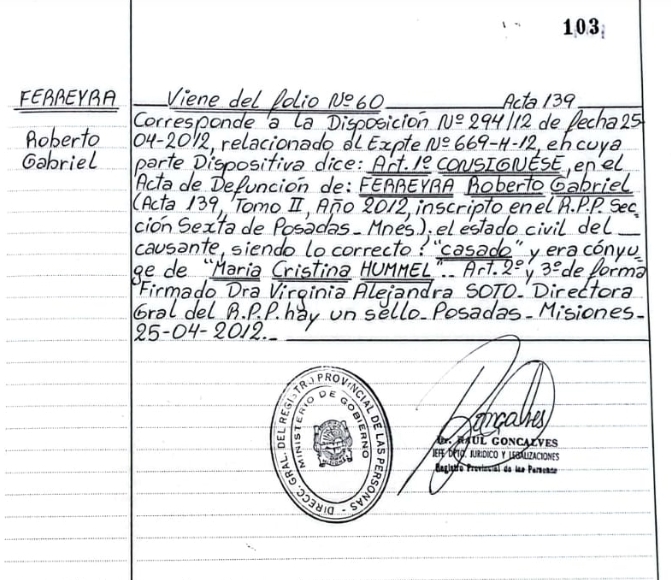 103
FERREYRA
Roberto
Gabriel
Viene del folio Nº 60 Acta 139
Corresponde a la Disposición Nº 294/12 de fecha 25-
04-2012, relacionado al Expte Nº 669-H-12, en cuya
parte Dispositiva dice: Art. 1º CONSIGNESE, en el
Acta de Defunción de: FERREYRA Roberto Gabriel
(Acta 139, Tomo II, Año 2012, inscripto en el R.P.P. Sec-
ción Sexta de Posadas - Mnes.): el estado civil del
causante, siendo lo correcto: "casado" y era cónyu-
ge de "Maria Cristina HUMMEL".- Art. 2º y 3º de forma
Firmado Dra Virginia Alejandra SOTO- Directora
Gral del R.P.P. hay un sello- Posadas- Misiones-
25-04-2012.-
DIRECC. GRAL. DEL REGISTRO PROVINCIAL DE LAS PERSONAS -
MINISTERIO DE GOBIERNO
Goncalves
Dr. RAUL GONCALVES
JEFE DPTO. JURIDICO Y LEGALIZACIONES
Registro Provincial de las Personas